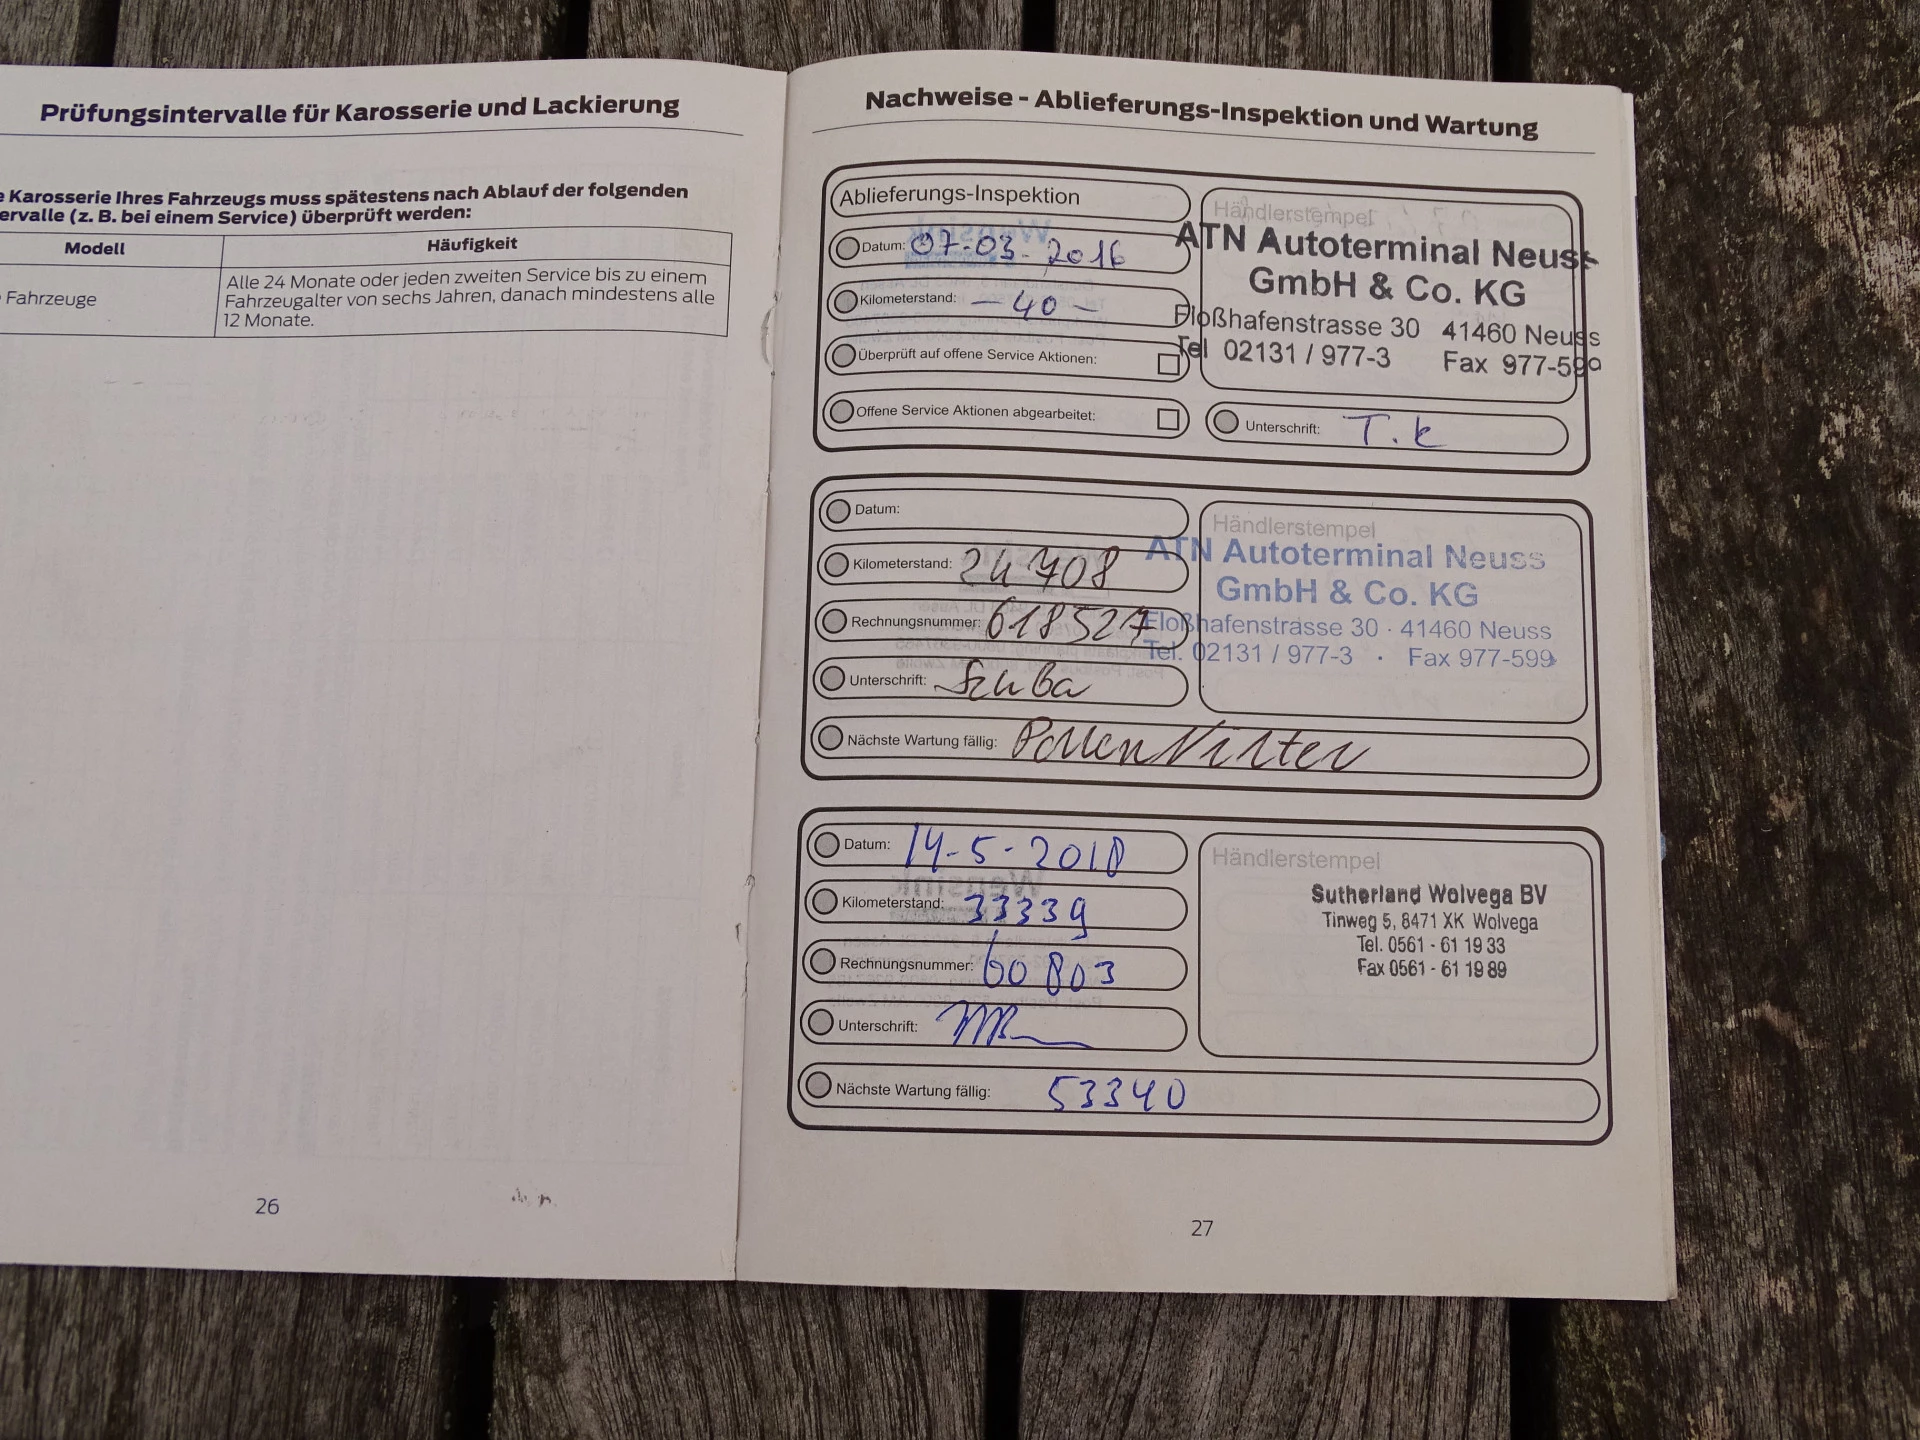 Prüfungsintervalle für Karosserie und Lackierung
Karosserie Ihres Fahrzeugs muss spätestens nach Ablauf der folgenden
ervalle (z. B. bei einem Service) überprüft werden:
Modell Häufigkeit
Fahrzeuge
Alle 24 Monate oder jeden zweiten Service bis zu einem
Fahrzeugalter von sechs Jahren, danach mindestens alle
12 Monate.
26
Nachweise - Ablieferungs-Inspektion und Wartung
Ablieferungs-Inspektion
Datum: 07-03-2016
Kilometerstand: - 40 -
Überprüft auf offene Service Aktionen:
Offene Service Aktionen abgearbeitet:
Händlerstempel
ATN Autoterminal Neuss
GmbH & Co. KG
Floßhafenstrasse 30 41460 Neuss
Tel 02131 / 977-3 Fax 977-599
Unterschrift: T.k
Datum:
Kilometerstand: 24708
Rechnungsnummer: 618527
Unterschrift:
Händlerstempel
ATN Autoterminal Neuss
GmbH & Co. KG
Floßhafenstrasse 30 · 41460 Neuss
Tel. 02131 / 977-3 · Fax 977-599
Nächste Wartung fällig:
Datum: 14-5-2018
Kilometerstand: 33339
Rechnungsnummer: 60803
Unterschrift:
Händlerstempel
Sutherland Wolvega BV
Tinweg 5, 8471 XK Wolvega
Tel. 0561 - 61 19 33
Fax 0561 - 61 19 89
Nächste Wartung fällig: 53340
27